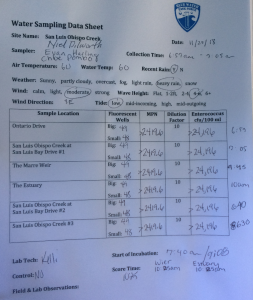 Water Sampling Data Sheet
BLUE WATER TASK FORCE
Site Name: San Luis Obispo Creek
Date: 11/29/18
Niel Dilworth
Sampler: Evan
Chloe
Collection Time: 6:57am -
Air Temperature: 60 Water Temp: 60 Recent Rain: Y/N
Weather: Sunny, partly cloudy, overcast, fog, light rain, heavy rain, snow
Wind: calm, light, moderate, strong Wave Height: Flat, 1-2ft,
Wind Direction: SE Tide: low, mid-incoming, high, mid-outgoing
Sample Location Fluorescent Wells MPN Dilution Factor Enterococcus cfu/100-ml
Ontario Drive Big: 49 Small: 48 >2419.6 10 >24,196
San Luis Obispo Creek at San Luis Bay Drive #1 Big: 49 Small: 48 >2419.6 10 >24,196
The Marre Weir Big: 49 Small: 48 >2419.6 10 >24,196
The Estuary Big: 49 Small: 48 >2419.6 10 >24,196
San Luis Obispo Creek at San Luis Bay Drive #2 Big: 49 Small: 48 >2419.6 10 >24,196
San Luis Obispo Creek at San Luis Bay Drive #3 Big: 49 Small: 48 >2419.6 10 >24,196
Lab Tech: Kelli Start of Incubation: 7:40am
Control: Score Time:
Weir Estuary
10:45am 10:45am
Field & Lab Observations: